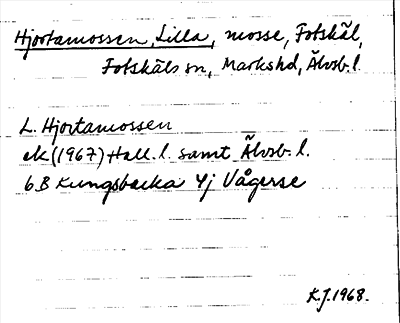 Hjortamossen, Lilla, mosse, Fotskäl,
Fotskäls sn, Markshd, Älvsb. l.
L. Hjortamossen
ek (1967) Hall. l. samt Älvsb. l.
6B Kungsbacka 4j Vågerse
K.J. 1968.